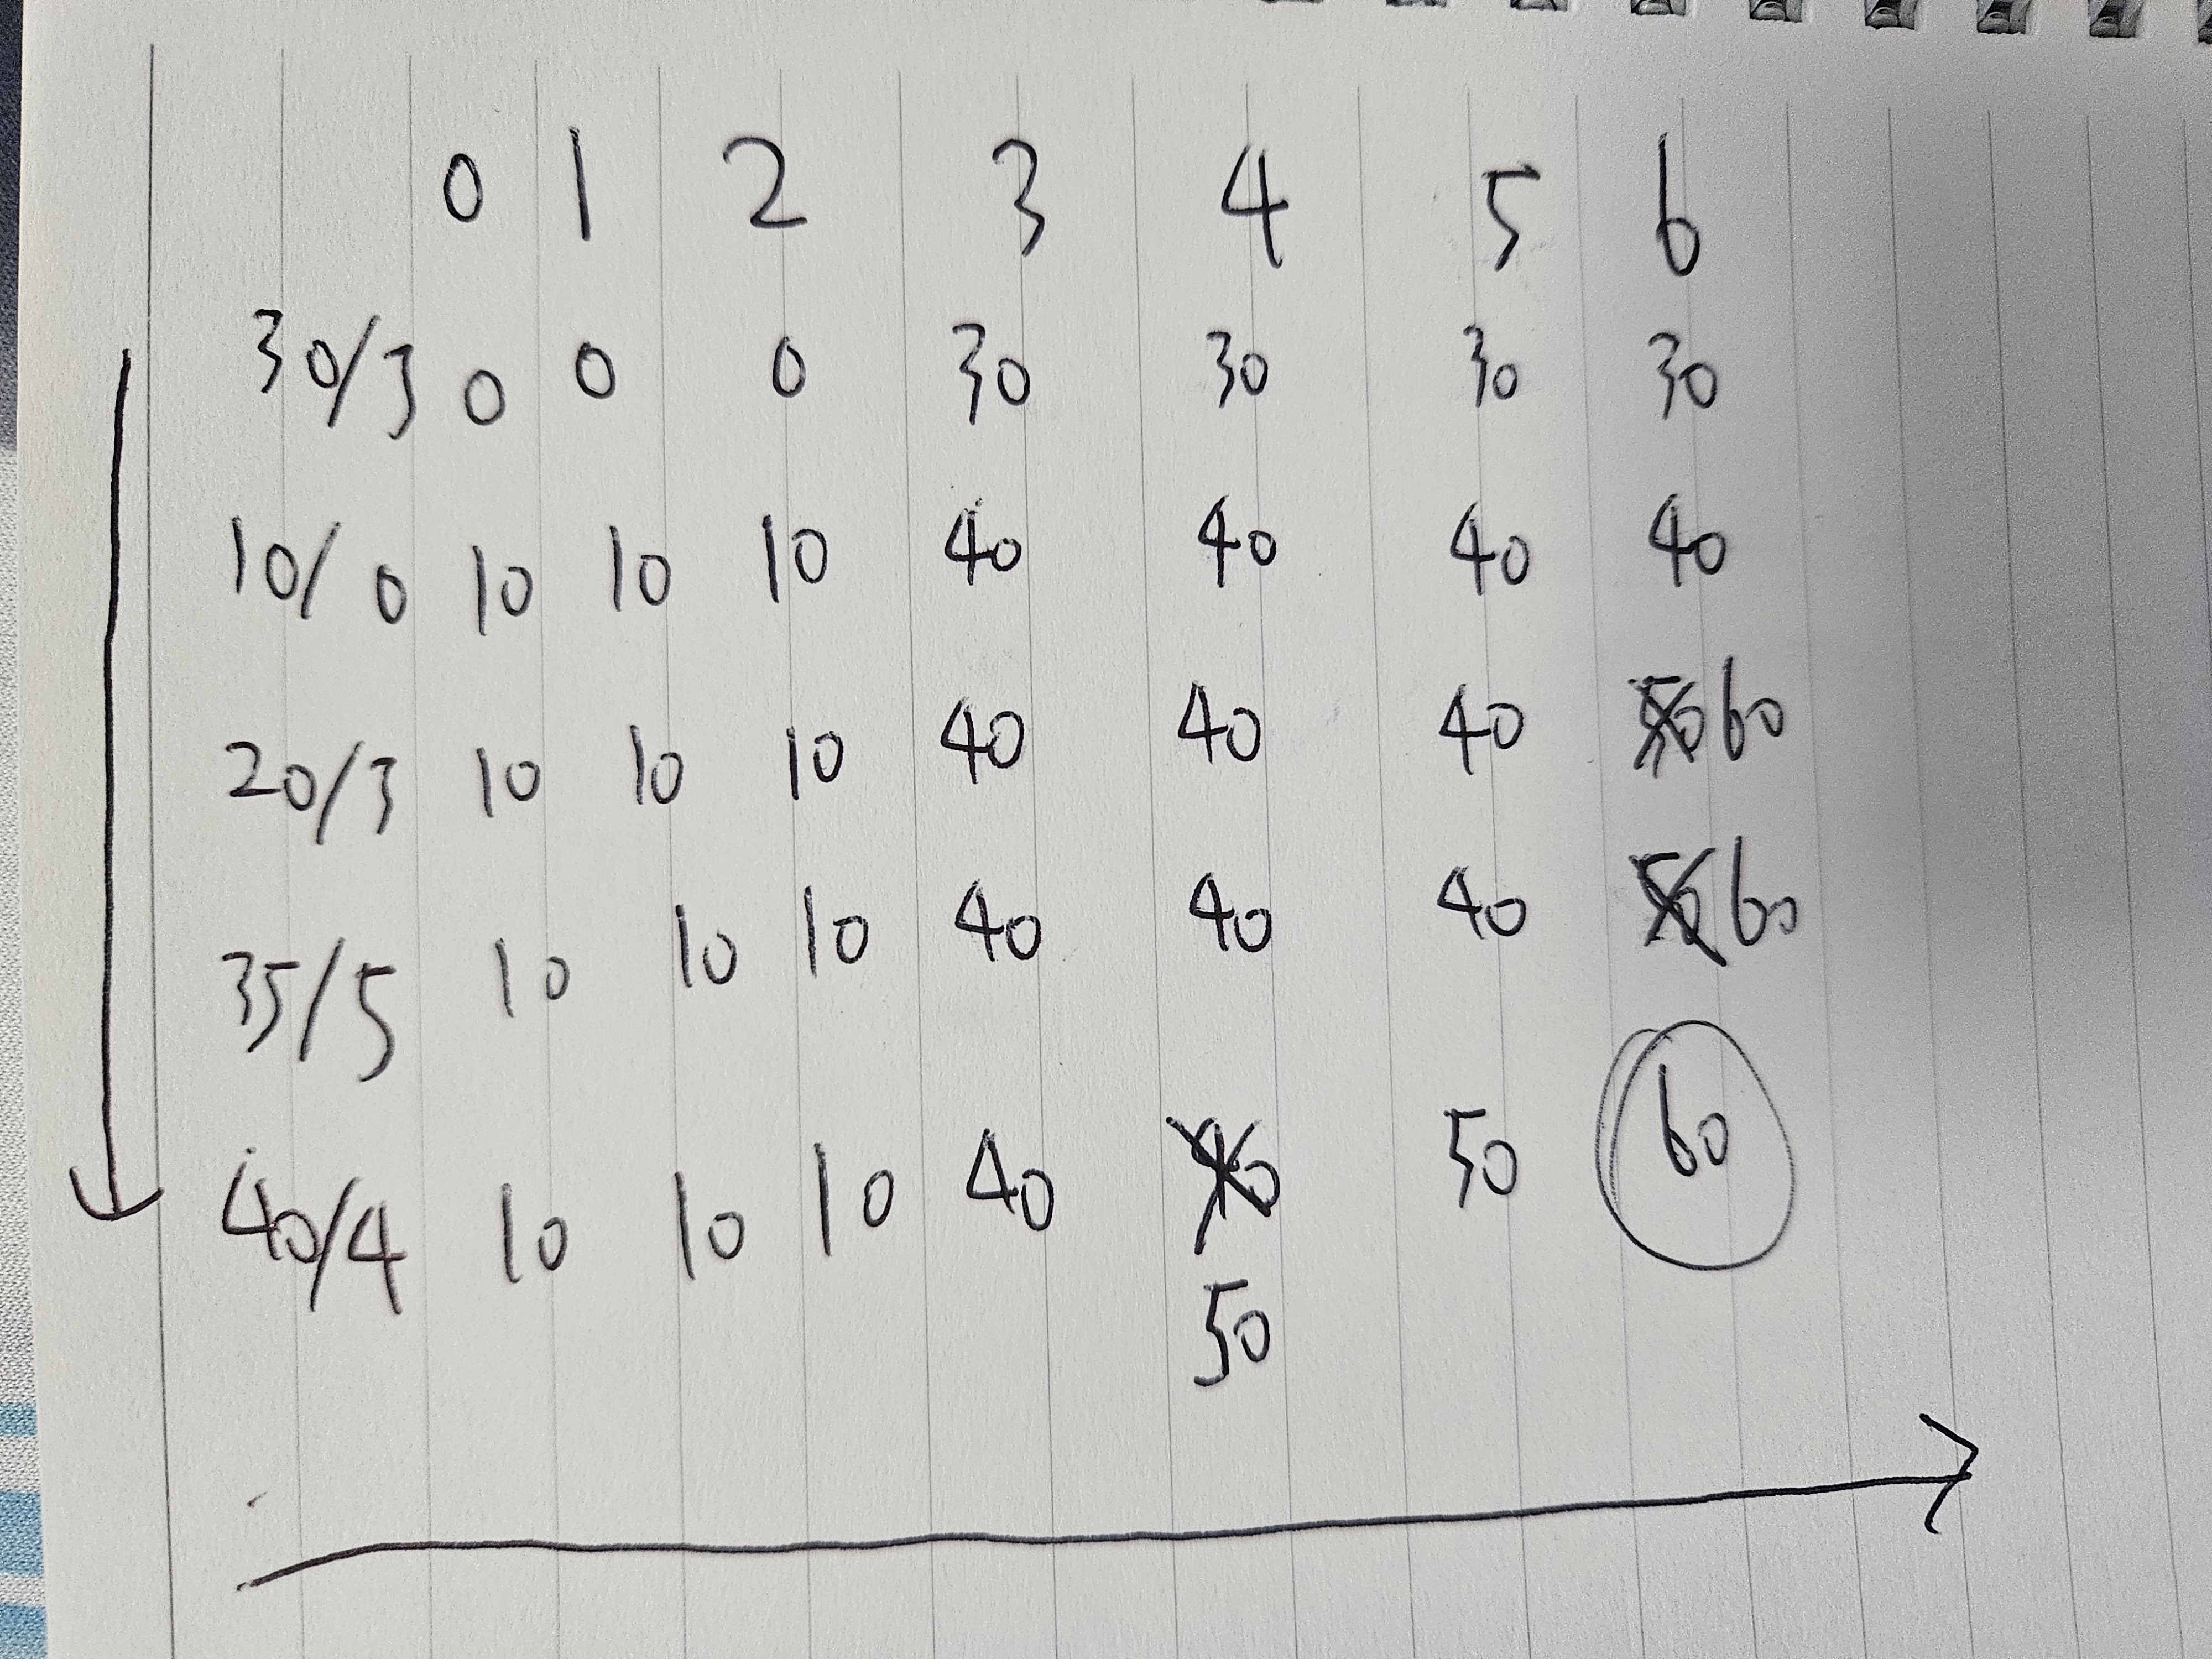 0 1 2 3 4 5 6
30/3 0 0 0 30 30 30 30
10/0 10 10 10 40 40 40 40
20/3 10 10 10 40 40 40 50 60
35/5 10 10 10 40 40 40 50 60
40/4 10 10 10 40 40 50 60
50